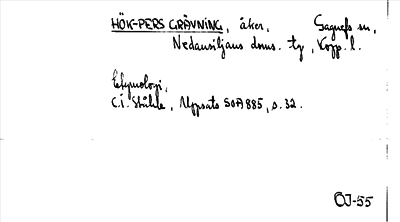 HÖK-PERS GRÄVNING, åker, Gagnefs sn,
Nedansiljans doms. tg, Kopp. l.
Etymologi,
C.I. Ståhle, Uppsats SOÄ 885, s. 32.
ÖJ-55